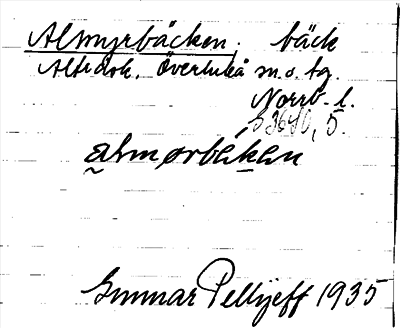 Almyrbäcken. bäck
Överluleå s.o. tg.
Norrb. l.
S 3640, 5.
almørbeken
Gunnar Pellijeff 1935